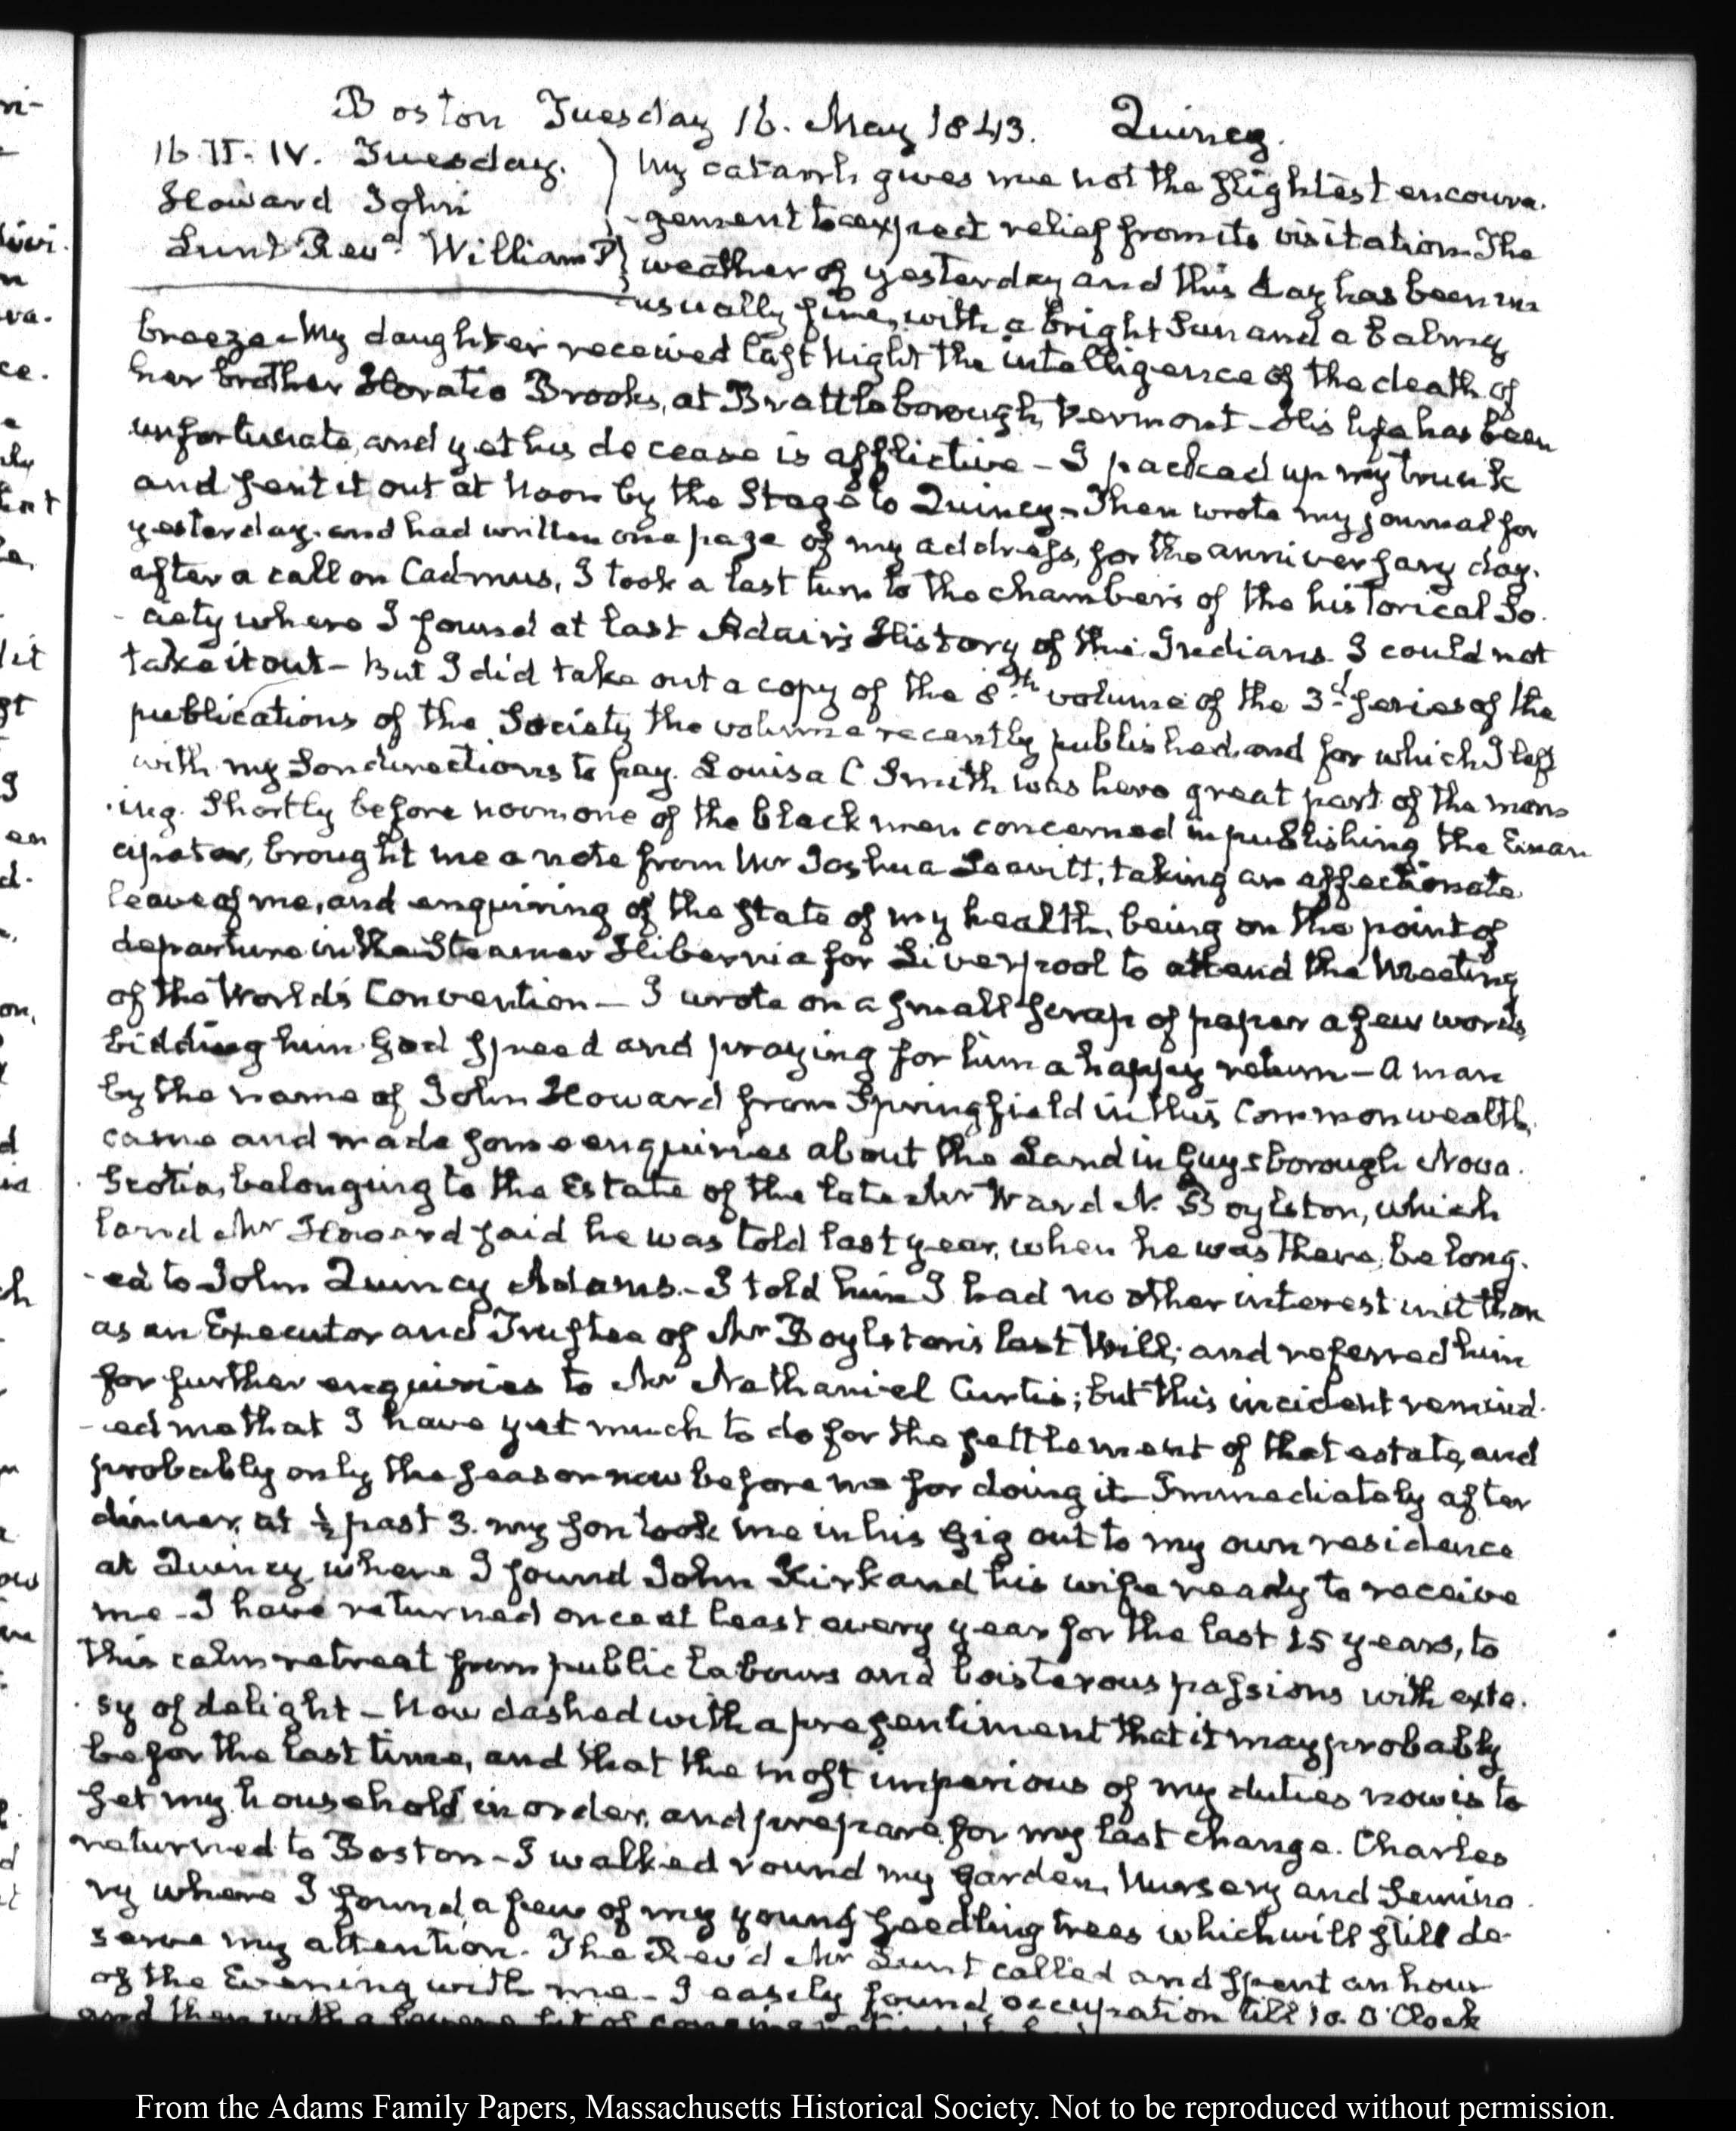 Boston Tuesday 16. May 1843. Quincy.
16. II. IV. Tuesday.
Howard John
Lunt Revd. William P
My catarrh gives me not the slightest encoura-
-gement to expect relief from its visitation. The
weather of yesterday and this day has been un
-usually fine, with a bright Sun and a balmy
breeze — My daughter received last Night the intelligence of the death of
her brother Horatio Brooks, at Brattleborough, Vermont — His life has been
unfortunate, and yet his decease is afflictive — I packed up my trunk
and sent it out at Noon by the Stage to Quincy — Then wrote my journal for
yesterday. and had written one page of my address, for the anniversary day.
after a call on Cadmus, I took a last turn to the chambers of the historical So-
-ciety where I found at last Adair's History of the Indians. I could not
take it out — But I did take out a copy of the 8th volume of the 3d series of the
publications of the Society the volume recently published. and for which I left
with my Son directions to pay. Louisa C Smith was here great part of the morn
-ing. Shortly before noon one of the black men concerned in publishing the Eman
cipator, brought me a note from Mr Joshua Leavitt, taking an affectionate
leave of me, and enquiring of the state of my health, being on the point of
departure in the Steamer Hibernia for Liverpool to attend the Meeting
of the World's Convention — I wrote on a small scrap of paper a few words
bidding him God speed and praying for him a happy return — A man
by the name of John Howard from Springfield in this Commonwealth,
came and made some enquiries about the Land in Guysborough Nova-
Scotia, belonging to the Estate of the late Mr Ward N. Boylston, which
land Mr Howard said he was told last year, when he was there, belong-
-ed to John Quincy Adams. — I told him I had no other interest in it than
as an Executor and Trustee of Mr Boylston's last Will; and referred him
for further enquiries to Mr Nathaniel Curtis; but this incident remind-
-ed me that I have yet much to do for the settlement of that estate, and
probably only the season now before me for doing it — Immediately after
dinner, at ½ past 3. my son took me in his Gig out to my own residence
at Quincy, where I found John Kirk and his wife ready to receive
me — I have returned once at least every year for the last 15 years, to
this calm retreat from public labours and boisterous passions with exta-
-sy of delight — Now dashed with a presentiment that it may probably
be for the last time, and that the most imperious of my duties now is to
set my household in order, and prepare for my last change. Charles
returned to Boston — I walked round my garden, Nursery and Semina-
ry where I found a few of my young seedling trees which will still de-
serve my attention. The Rev'd Mr Lunt called and spent an hour
of the Evening with me — I easily found occupation till 10. O'Clock
and then with a
From the Adams Family Papers, Massachusetts Historical Society. Not to be reproduced without permission.